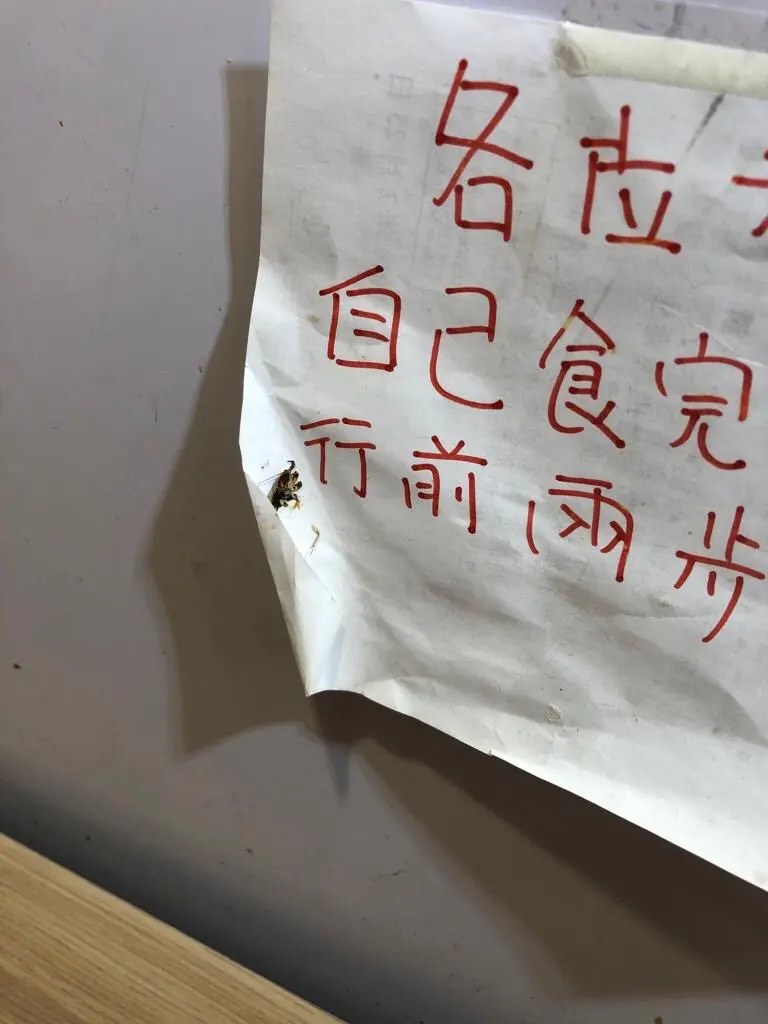 各位
自己食完
行前兩步